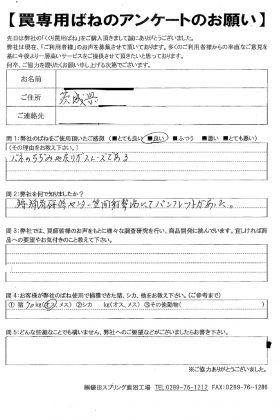 【罠専用ばねのアンケートのお願い】
先日は弊社の「くくり罠用ばね」をご購入頂きまして誠にありがとうございました。
弊社は現在、「ご利用者様」のお声を募集させて頂いております。多くのご利用者様からの率直なご意見を
基に今後より一層高いサービスをご提供させて頂きたいと思っております。
何卒、ご協力を賜りたくお願い申し上げる次第でございます。
お名前
ご住所 茨城県
ご連絡先
問1:弊社のばねをご使用頂いたご感想 (■とても良い ■良い ■ふつう ■悪い ■とても悪い)
(その理由をお教え下さい。)
バネのちぢみ他戻りがスムーズである
問2:弊社を何で知りましたか?
射撃場にてパンフレットがあった。
問3:弊社では、罠師皆様のお声をもとに様々な調査研究を行い、商品開発に挑んでいます。宜しければ商
品への要望やお気付きのこと教えて下さい。
問4:お客様が弊社のばね使用で捕獲できた猪、シカ、他をお教え下さい。(ご参考まで)
① 猪 70kg(オス、メス) ②シカ kg(オス、メス) ③その他動物( )
問5:どんな些細なことでも構いません、弊社へのご要望などがございましたらお書き下さい。
※ご協力ありがとうございました。
TEL:0289-76-1212 FAX:0289-76-1286